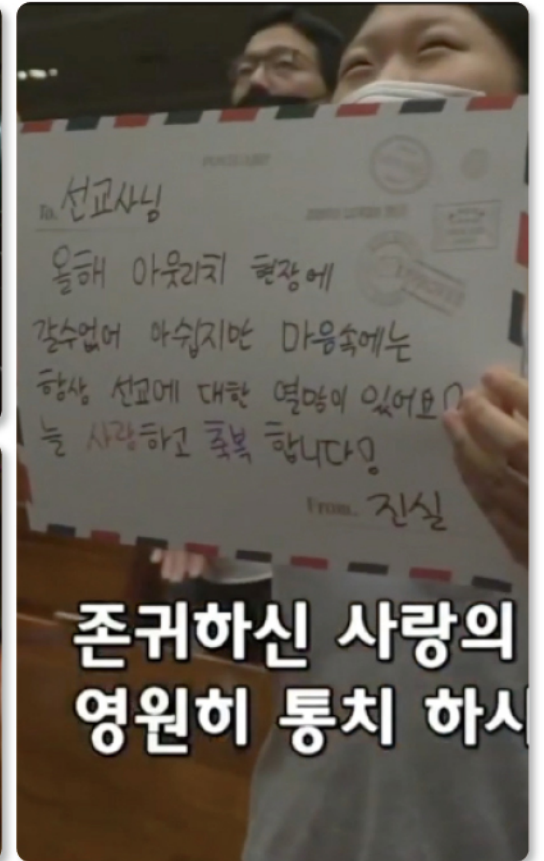 To. 선교사님
올해 아웃리치 현장에
갈수없어 아쉽지만 마음속에는
항상 선교에 대한 열망이 있어요♡
늘 사랑하고 축복 합니다!
From. 진실
존귀하신 사랑의
영원히 통치 하시